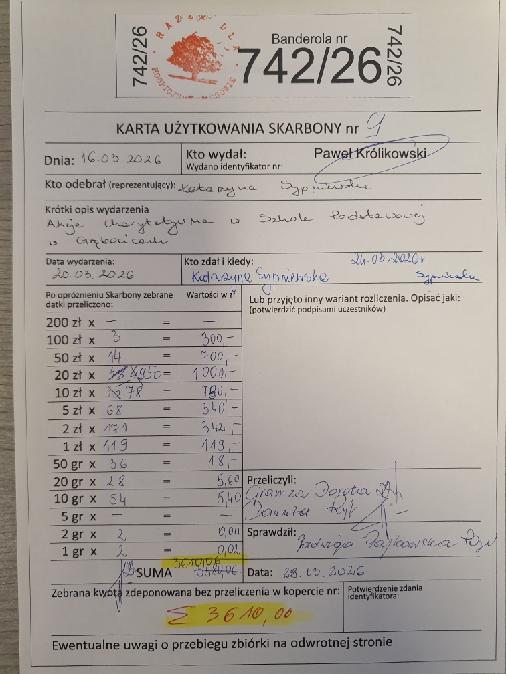 742/26
Banderola nr
742/26
742/26
KARTA UŻYTKOWANIA SKARBONY nr 9
Dnia: 16.03.2026
Kto wydał: Paweł Królikowski
Wydano identyfikator nr:
Kto odebrał (reprezentujący): Katarzyna
Krótki opis wydarzenia
Akcja charytatywna w Szkole Podstawowej
w
Data wydarzenia:
20.03.2026
Kto zdał i kiedy:
Katarzyna
Po opróżnieniu Skarbony zebrane datki przeliczono:
Wartości w zł
Lub przyjęto inny wariant rozliczenia. Opisać jaki:
(potwierdzić podpisami uczestników)
200 zł x — = —
100 zł x 3 = 300,-
50 zł x 14 = 700,-
20 zł x =
10 zł x 78 = 780,-
5 zł x 68 = 340,-
2 zł x 171 = 342,-
1 zł x 119 = 119,-
50 gr x 36 = 18,-
20 gr x 28 = 5,60
10 gr x 54 = 5,40
5 gr x — = —
2 gr x 2 = 0,04
1 gr x 2 = 0,02
Przeliczyli:
Dorota
Sprawdził:
Jadwiga
SUMA 3610,06
Data: 23.03.2026
Zebrana kwota zdeponowana bez przeliczenia w kopercie nr:
Σ 3610,00
Potwierdzenie zdania identyfikatora:
Ewentualne uwagi o przebiegu zbiórki na odwrotnej stronie